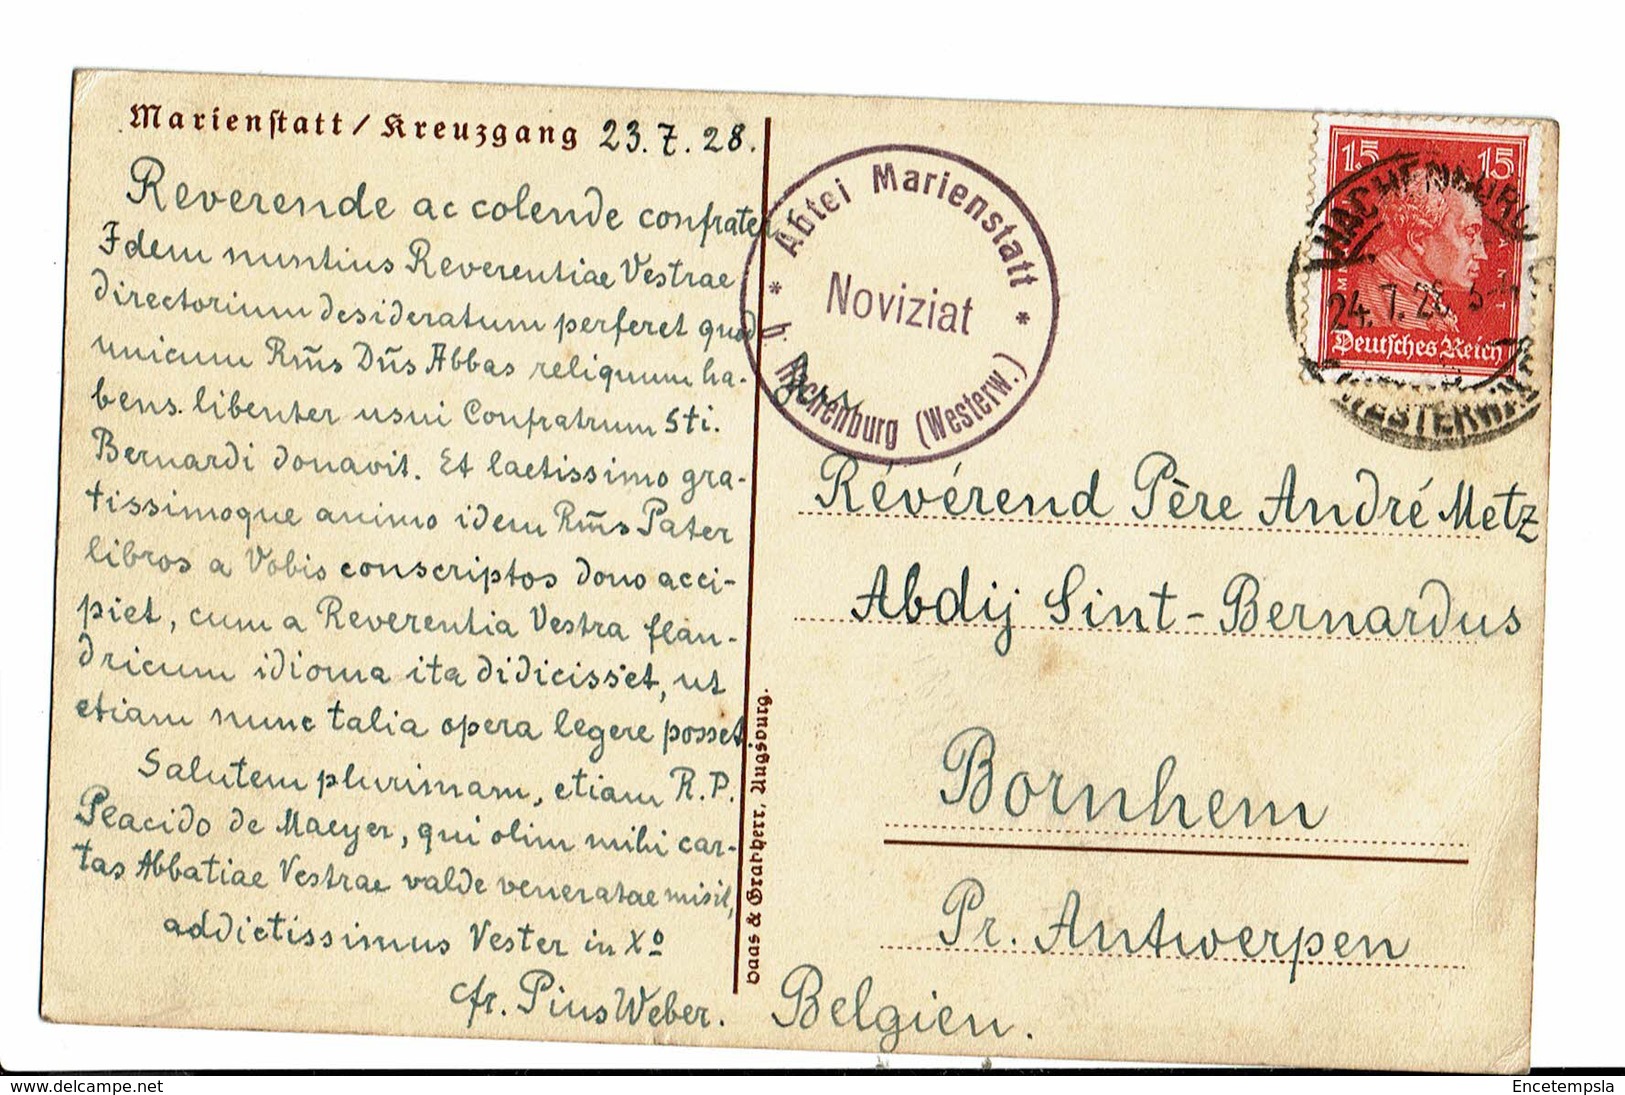 Marienstatt / Kreuzgang 23.7.28.
Reverende ac colende confrater
Idem nuntius Reverentiae Vestrae
directorium desideratum perferet quod
unicum Rm̃s Dñs Abbas reliquum ha-
bens libenter usui Confratrum Sti.
Bernardi donavit. Et laetissimo gra-
tissimoque animo idem Rm̃s Pater
libros a Vobis conscriptos dono acci-
piet, cum a Reverentia Vestra flan-
dricum idioma ita didicisset, ut
etiam nunc talia opera legere posset
Salutem plurimam, etiam R.P.
Placido de Maeyer, qui olim mihi car-
tas Abbatiae Vestrae valde veneratae misit,
addictissimus Vester in Xº
fr. Pius Weber.
Haas & Grabherr, Augsburg.
* Abtei Marienstatt *
Noviziat
b. Hachenburg (Westerw.)
15 15
Deutsches Reich
HACHENBURG
24.7.28. 5-
(WESTERWALD)
Révérend Père André Metz
Abdij Sint-Bernardus
Bornhem
Pr. Antwerpen
Belgien.
Encetempsla